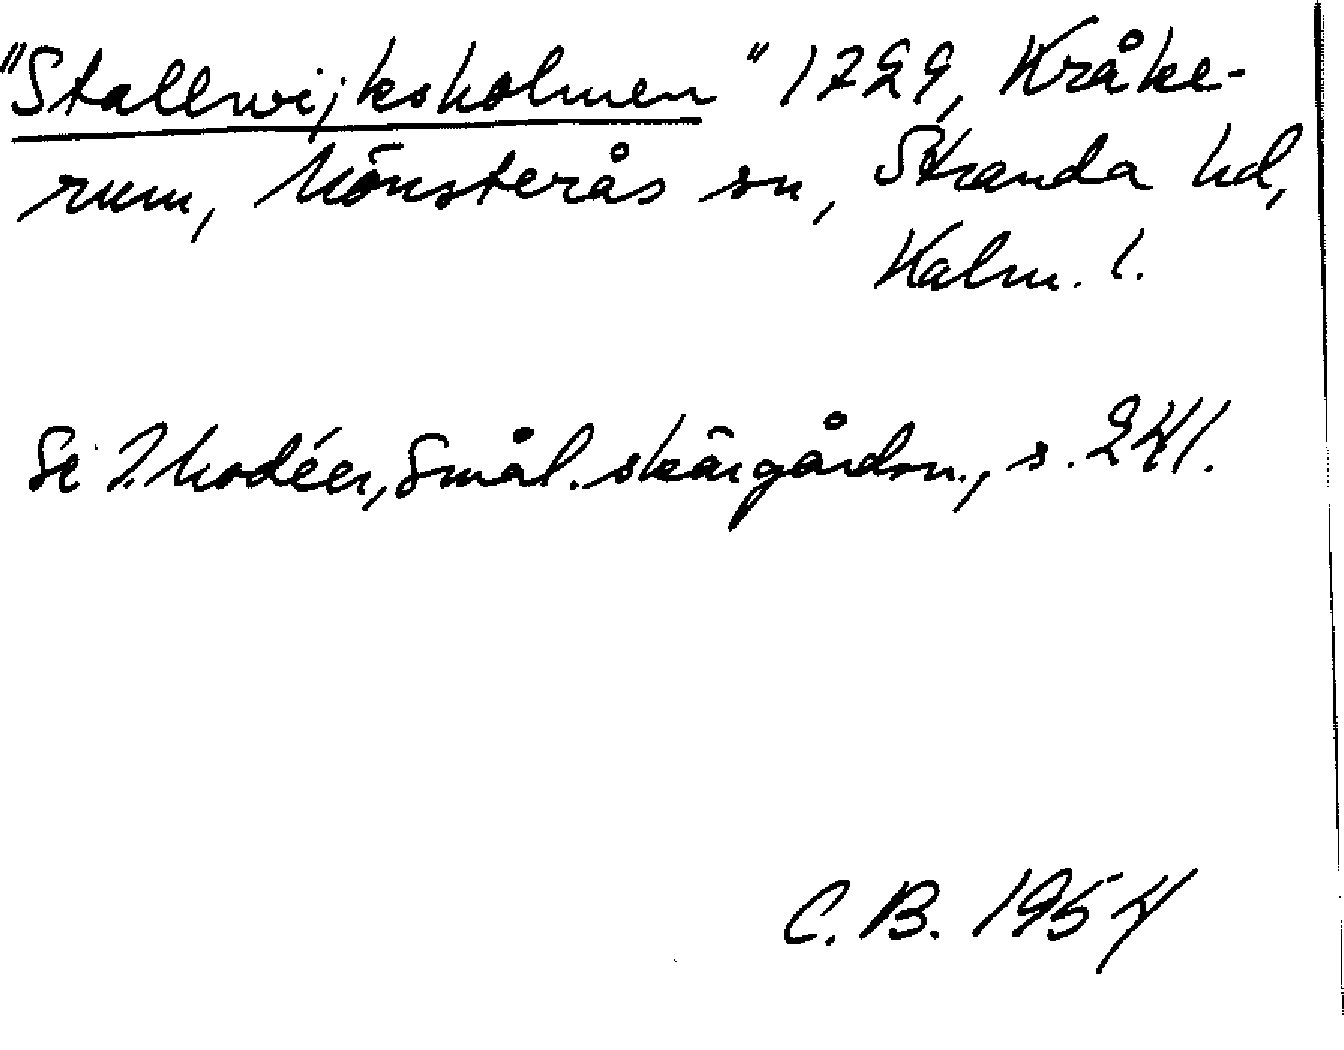 "Stallwijksholmen" 1729, Kråke-
rum, Mönsterås sn, Stranda hd,
Kalm. l.
Se I. Modéer, Smål. skärgårdsn., s. 241.
C. B. 1954